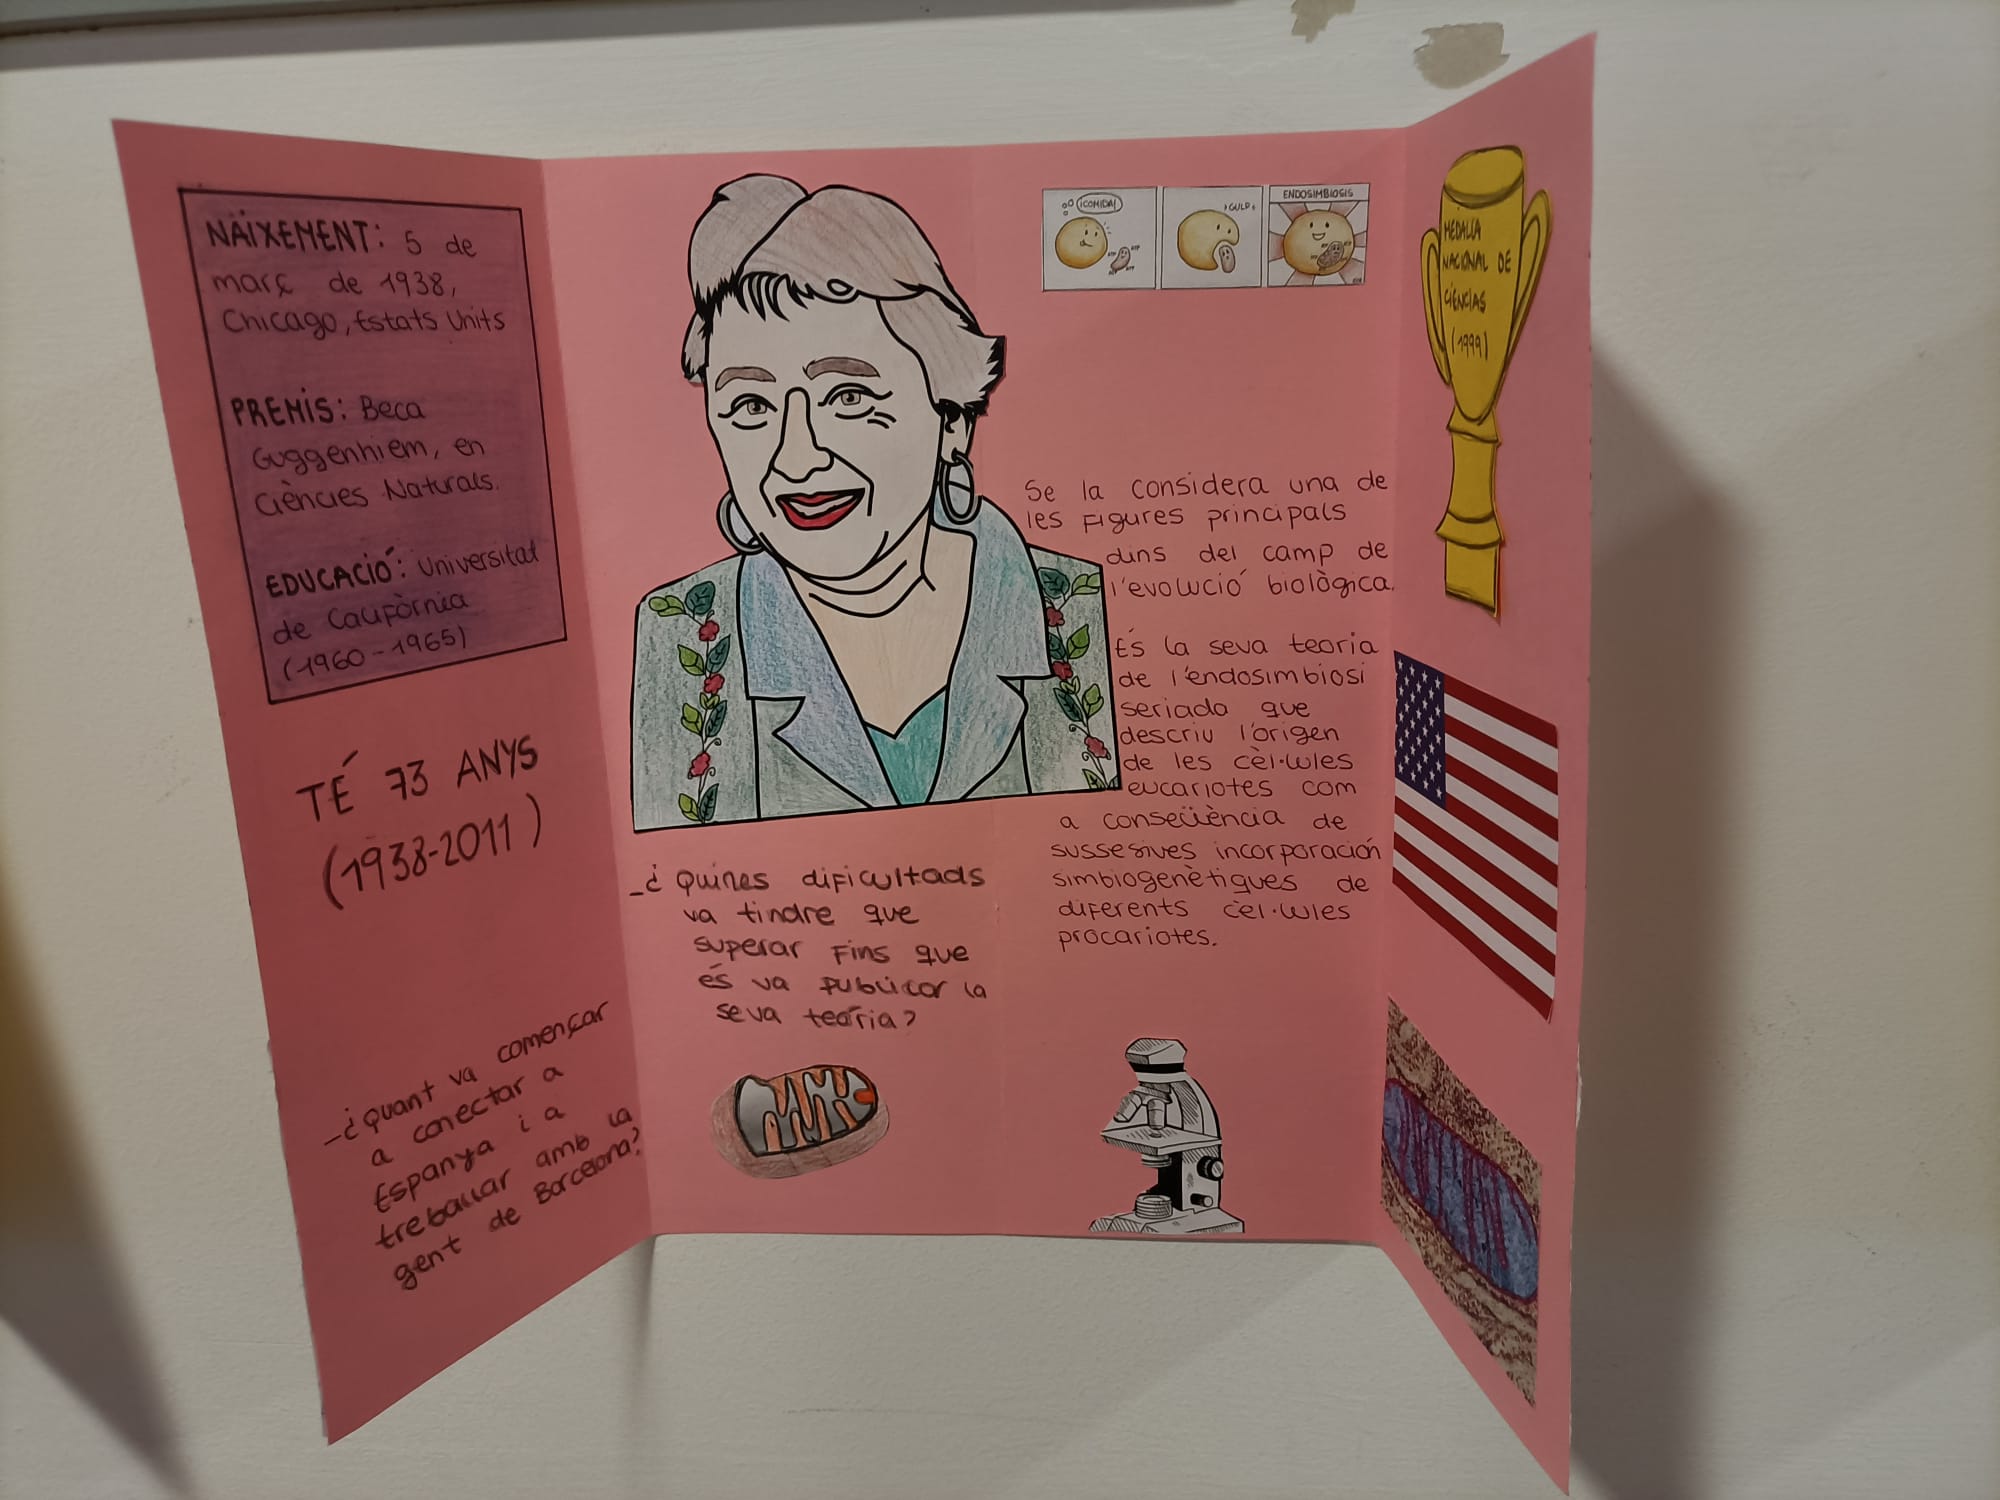 NAIXEMENT: 5 de
març de 1938,
Chicago, Estats Units
PREMIS: Beca
Guggenhiem, en
Ciències Naturals.
EDUCACIÓ: Universitat
de Califòrnia
(1960-1965)
TÉ 73 ANYS
(1938-2011)
-¿quant va començar
a conectar a
Espanya i a
treballar amb la
gent de Barcelona?
-¿Quines dificultads
va tindre que
superar fins que
és va publicar la
seva teoría?
¡COMIDA!
ATP
ATP
ATP
ATP
GULP
ENDOSIMBIOSIS
ATP
ATP
ATP
Se la considera una de
les figures principals
dins del camp de
l'evolució biològica.
És la seva teoria
de l'endosimbiosi
seriada que
descriu l'origen
de les cèl·lules
eucariotes com
a conseqüència de
sussesives incorporación
simbiogenètiques de
diferents cèl·lules
procariotes.
MEDALLA
NACIONAL DE
CIÈNCIAS
(1999)